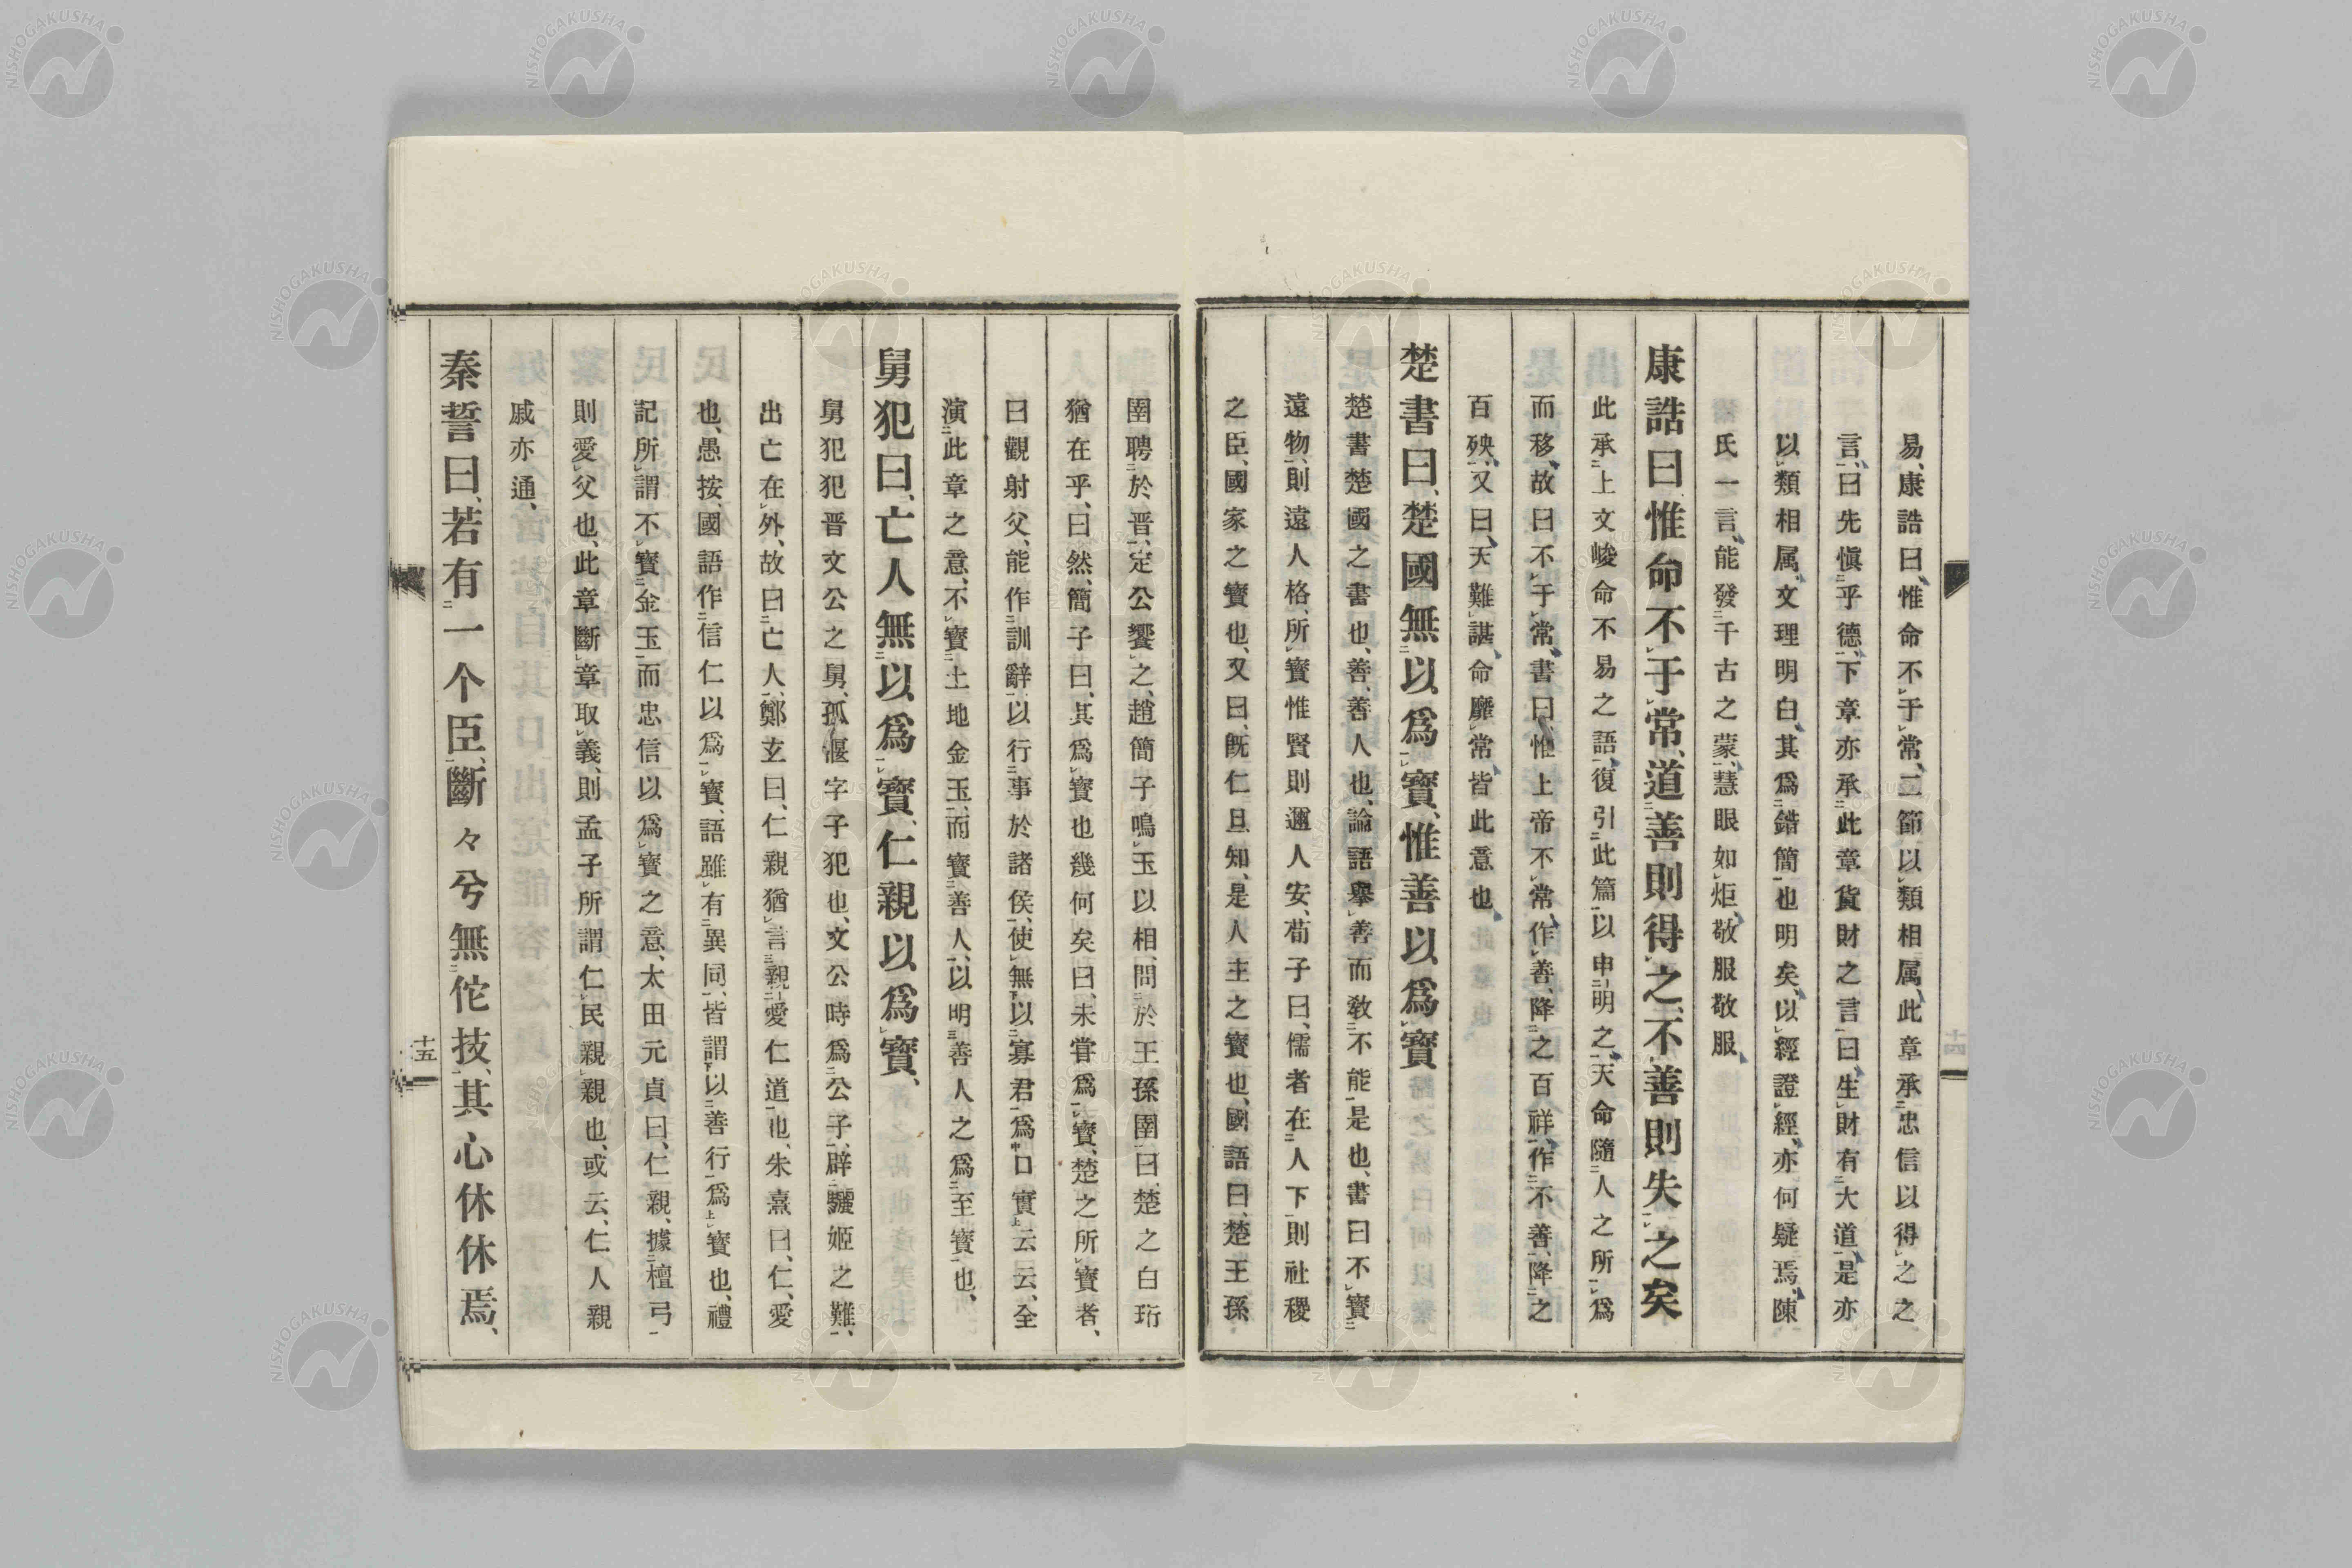 易、康誥曰、惟命不于常、二節以類相属、此章承忠信以得之之
言、曰先愼乎德、下章亦承此章貨財之言曰、生財有大道、是亦
以類相属、文理明白、其爲錯簡也明矣、以經證經、亦何疑焉、陳
氏一言、能發千古之蒙、慧眼如炬、敬服敬服、
康誥曰、惟命不于常、道善則得之、不善則失之矣
此承上文峻命不易之語、復引此篇以申明之、天命隨人之所爲
而移、故曰不于常、書曰、惟上帝不常、作善、降之百祥、作不善、降之
百殃、又曰、天難諶、命靡常、皆此意也、
楚書曰、楚國無以爲寶、惟善以爲寶
楚書楚國之書也、善、善人也、論語擧善而敎不能是也、書曰不寶
遠物、則遠人格、所寶惟賢則邇人安、荀子曰、儒者在人下則社稷
之臣、國家之寶也、又曰、旣仁且知、是人主之寶也、國語曰、楚王孫
圉聘於晋、定公饗之、趙簡子鳴玉以相、問於王孫圉曰、楚之白珩
猶在乎、曰然、簡子曰、其爲寶也幾何矣曰、未甞爲寶、楚之所寶者、
曰觀射父、能作訓辭、以行事於諸侯、使無以寡君爲口實云云、全
演此章之意、不寶土地金玉、而寶善人、以明善人之爲至寶也、
舅犯曰、亡人無以爲寶、仁親以爲寶、
舅犯犯晋文公之舅、孤偃字子犯也、文公時爲公子、辟驪姬之難、
出亡在外、故曰亡人、鄭玄曰、仁親猶言親愛仁道也、朱熹曰、仁、愛
也、愚按、國語作信仁以爲寶、語雖有異同、皆謂以善行爲寶也、禮
記所謂不寶金玉而忠信以爲寶之意、太田元貞曰、仁親、據檀弓
則愛父也、此章斷章取義、則孟子所謂仁民親親也、或云、仁人親
戚亦通、
秦誓曰、若有一个臣、斷々兮無佗技、其心休休焉、
十五